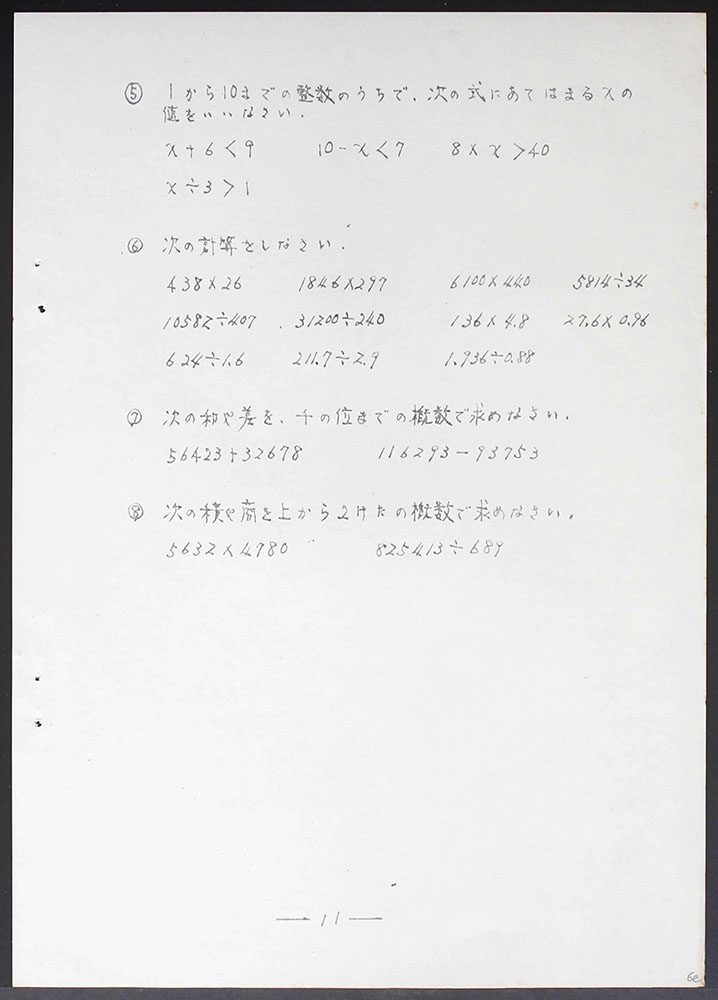 ⑤ 1から10までの整数のうちで、次の式にあてはまるxの
値をいいなさい.
x+6<9 10-x<7 8×x>40
x÷3>1
⑥ 次の計算をしなさい.
438×26 1846×297 6100×440 5814÷34
10582÷407 31200÷240 136×4.8 27.6×0.96
624÷1.6 211.7÷2.9 1.936÷0.88
⑦ 次の和や差を、千の位までの概数で求めなさい.
56423+32678 116293-93753
⑧ 次の積や商を上から2けたの概数で求めなさい.
5632×4780 825413÷689
— 11 —